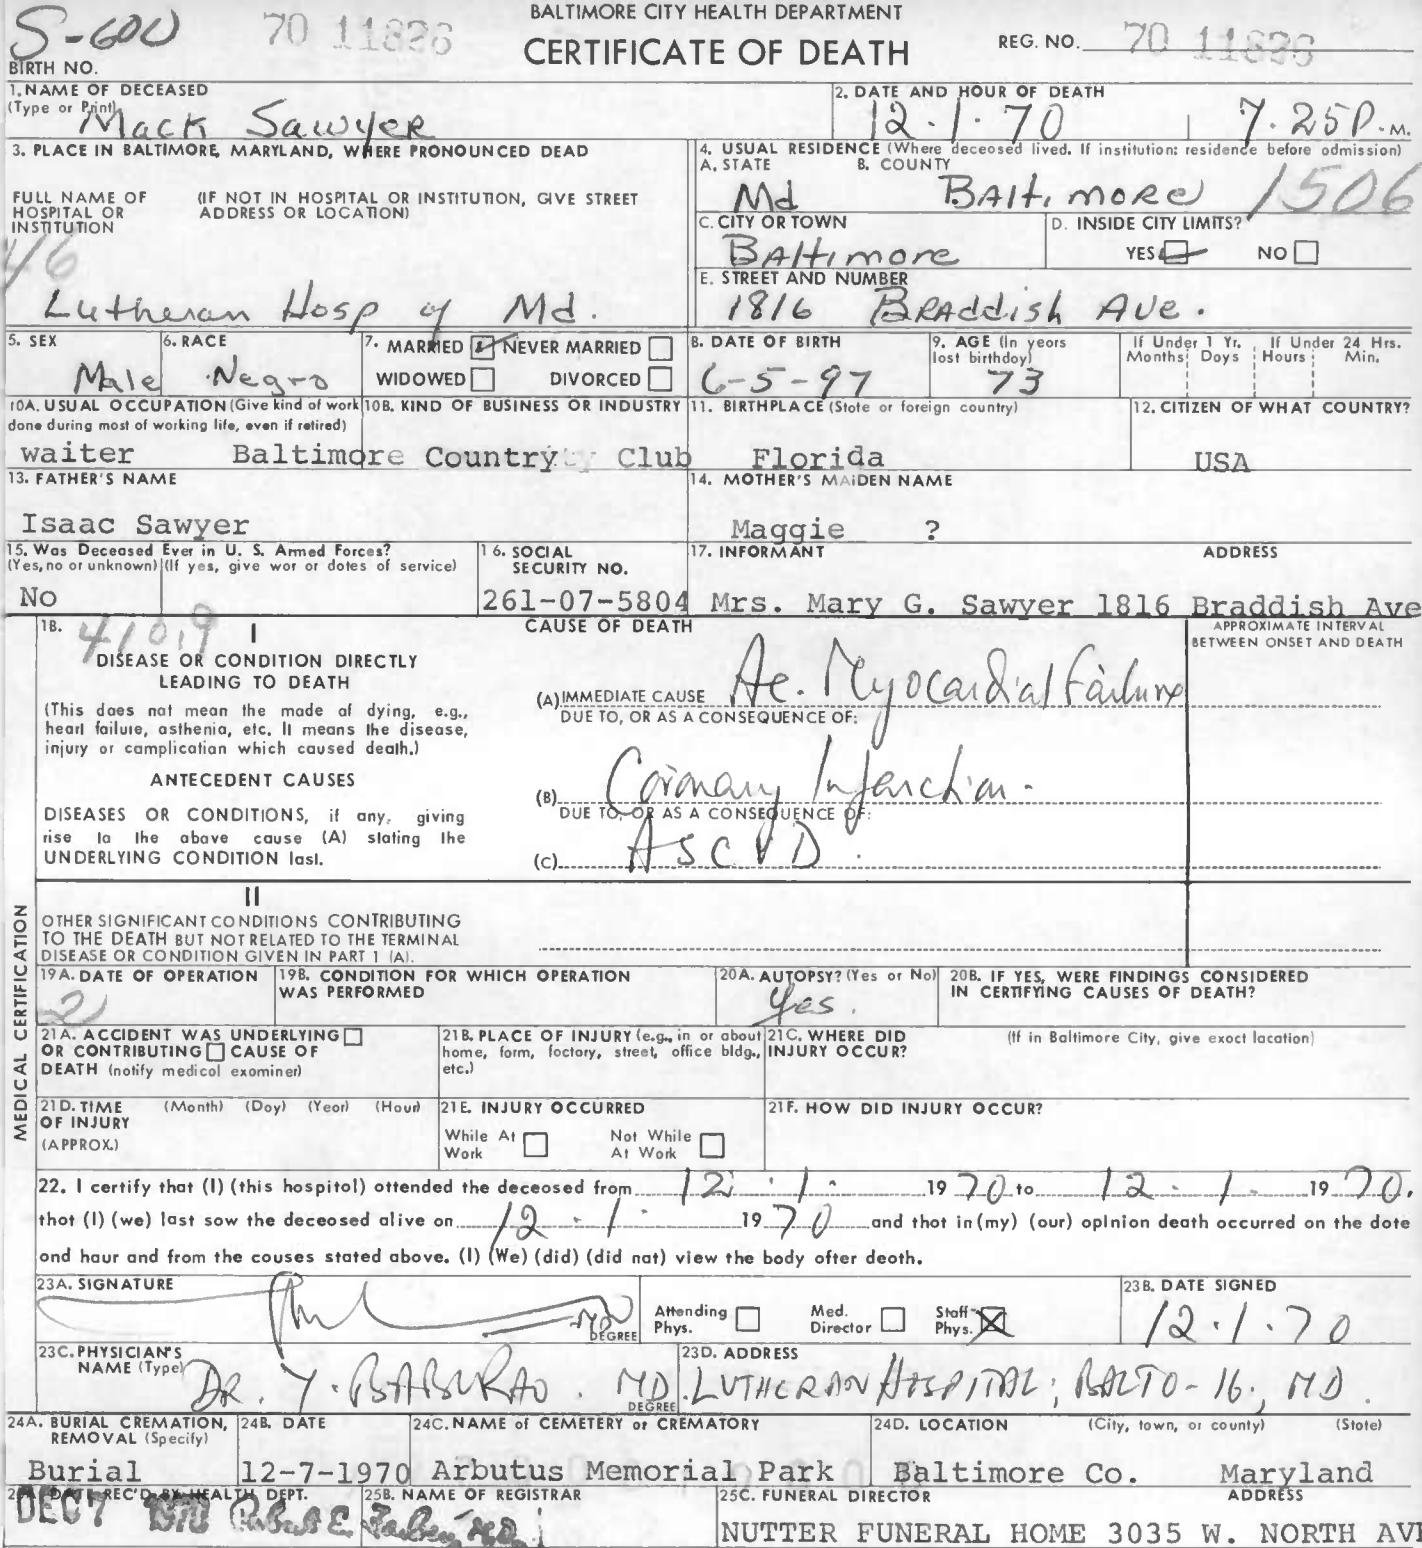 S-600 70 11826 BALTIMORE CITY HEALTH DEPARTMENT
CERTIFICATE OF DEATH REG. NO. 70 11826
BIRTH NO.
1. NAME OF DECEASED
(Type or Print) Mack Sawyer
2. DATE AND HOUR OF DEATH
12.1.70 7.25P.M.
3. PLACE IN BALTIMORE, MARYLAND, WHERE PRONOUNCED DEAD
FULL NAME OF HOSPITAL OR INSTITUTION
(IF NOT IN HOSPITAL OR INSTITUTION, GIVE STREET ADDRESS OR LOCATION)
46
Lutheran Hosp of Md.
4. USUAL RESIDENCE (Where deceased lived. If institution: residence before admission)
A. STATE B. COUNTY
Md Baltimore 1506
C. CITY OR TOWN
Baltimore
D. INSIDE CITY LIMITS?
YES NO
E. STREET AND NUMBER
1816 Braddish Ave.
5. SEX
Male
6. RACE
Negro
7. MARRIED NEVER MARRIED
WIDOWED DIVORCED
8. DATE OF BIRTH
6-5-97
9. AGE (In years last birthday)
73
If Under 1 Yr. If Under 24 Hrs.
Months Days Hours Min.
10A. USUAL OCCUPATION (Give kind of work done during most of working life, even if retired)
10B. KIND OF BUSINESS OR INDUSTRY
waiter Baltimore Country Club
11. BIRTHPLACE (State or foreign country)
Florida
12. CITIZEN OF WHAT COUNTRY?
USA
13. FATHER'S NAME
Isaac Sawyer
14. MOTHER'S MAIDEN NAME
Maggie ?
15. Was Deceased Ever in U. S. Armed Forces?
(Yes, no or unknown) (If yes, give war or dates of service)
No
16. SOCIAL SECURITY NO.
261-07-5804
17. INFORMANT ADDRESS
Mrs. Mary G. Sawyer 1816 Braddish Ave
18. 410.9 I
CAUSE OF DEATH
APPROXIMATE INTERVAL BETWEEN ONSET AND DEATH
DISEASE OR CONDITION DIRECTLY LEADING TO DEATH
(This does not mean the mode of dying, e.g., heart failure, asthenia, etc. It means the disease, injury or complication which caused death.)
(A) IMMEDIATE CAUSE Ac. Myocardial Failure
DUE TO, OR AS A CONSEQUENCE OF:
ANTECEDENT CAUSES
DISEASES OR CONDITIONS, if any, giving rise to the above cause (A) stating the UNDERLYING CONDITION last.
(B) Coronary Infarction.
DUE TO, OR AS A CONSEQUENCE OF:
(C) ASCVD.
II
OTHER SIGNIFICANT CONDITIONS CONTRIBUTING TO THE DEATH BUT NOT RELATED TO THE TERMINAL DISEASE OR CONDITION GIVEN IN PART 1 (A).
MEDICAL CERTIFICATION
19A. DATE OF OPERATION
2
19B. CONDITION FOR WHICH OPERATION WAS PERFORMED
20A. AUTOPSY? (Yes or No)
Yes.
20B. IF YES, WERE FINDINGS CONSIDERED IN CERTIFYING CAUSES OF DEATH?
21A. ACCIDENT WAS UNDERLYING OR CONTRIBUTING CAUSE OF DEATH (notify medical examiner)
21B. PLACE OF INJURY (e.g., in or about home, farm, factory, street, office bldg., etc.)
21C. WHERE DID INJURY OCCUR? (If in Baltimore City, give exact location)
21D. TIME OF INJURY (APPROX.) (Month) (Day) (Year) (Hour)
21E. INJURY OCCURRED
While At Work Not While At Work
21F. HOW DID INJURY OCCUR?
22. I certify that (I) (this hospital) attended the deceased from 12.1. 1970 to 12.1. 1970,
that (I) (we) last saw the deceased alive on 12.1 1970 and that in (my) (our) opinion death occurred on the date
and hour and from the causes stated above. (I) (We) (did) (did not) view the body after death.
23A. SIGNATURE
MD DEGREE
Attending Phys. Med. Director Staff Phys.
23B. DATE SIGNED
12.1.70
23C. PHYSICIAN'S NAME (Type) DR. Y. BABURAO. MD. DEGREE
23D. ADDRESS
LUTHERAN HOSPITAL, BALTO-16., MD.
24A. BURIAL CREMATION, REMOVAL (Specify)
Burial
24B. DATE
12-7-1970
24C. NAME of CEMETERY or CREMATORY
Arbutus Memorial Park
24D. LOCATION (City, town, or county) (State)
Baltimore Co. Maryland
REC'D BY HEALTH DEPT.
DEC 7 1970
25B. NAME OF REGISTRAR
Robert E. Farber, M.D.
25C. FUNERAL DIRECTOR ADDRESS
NUTTER FUNERAL HOME 3035 W. NORTH AVE